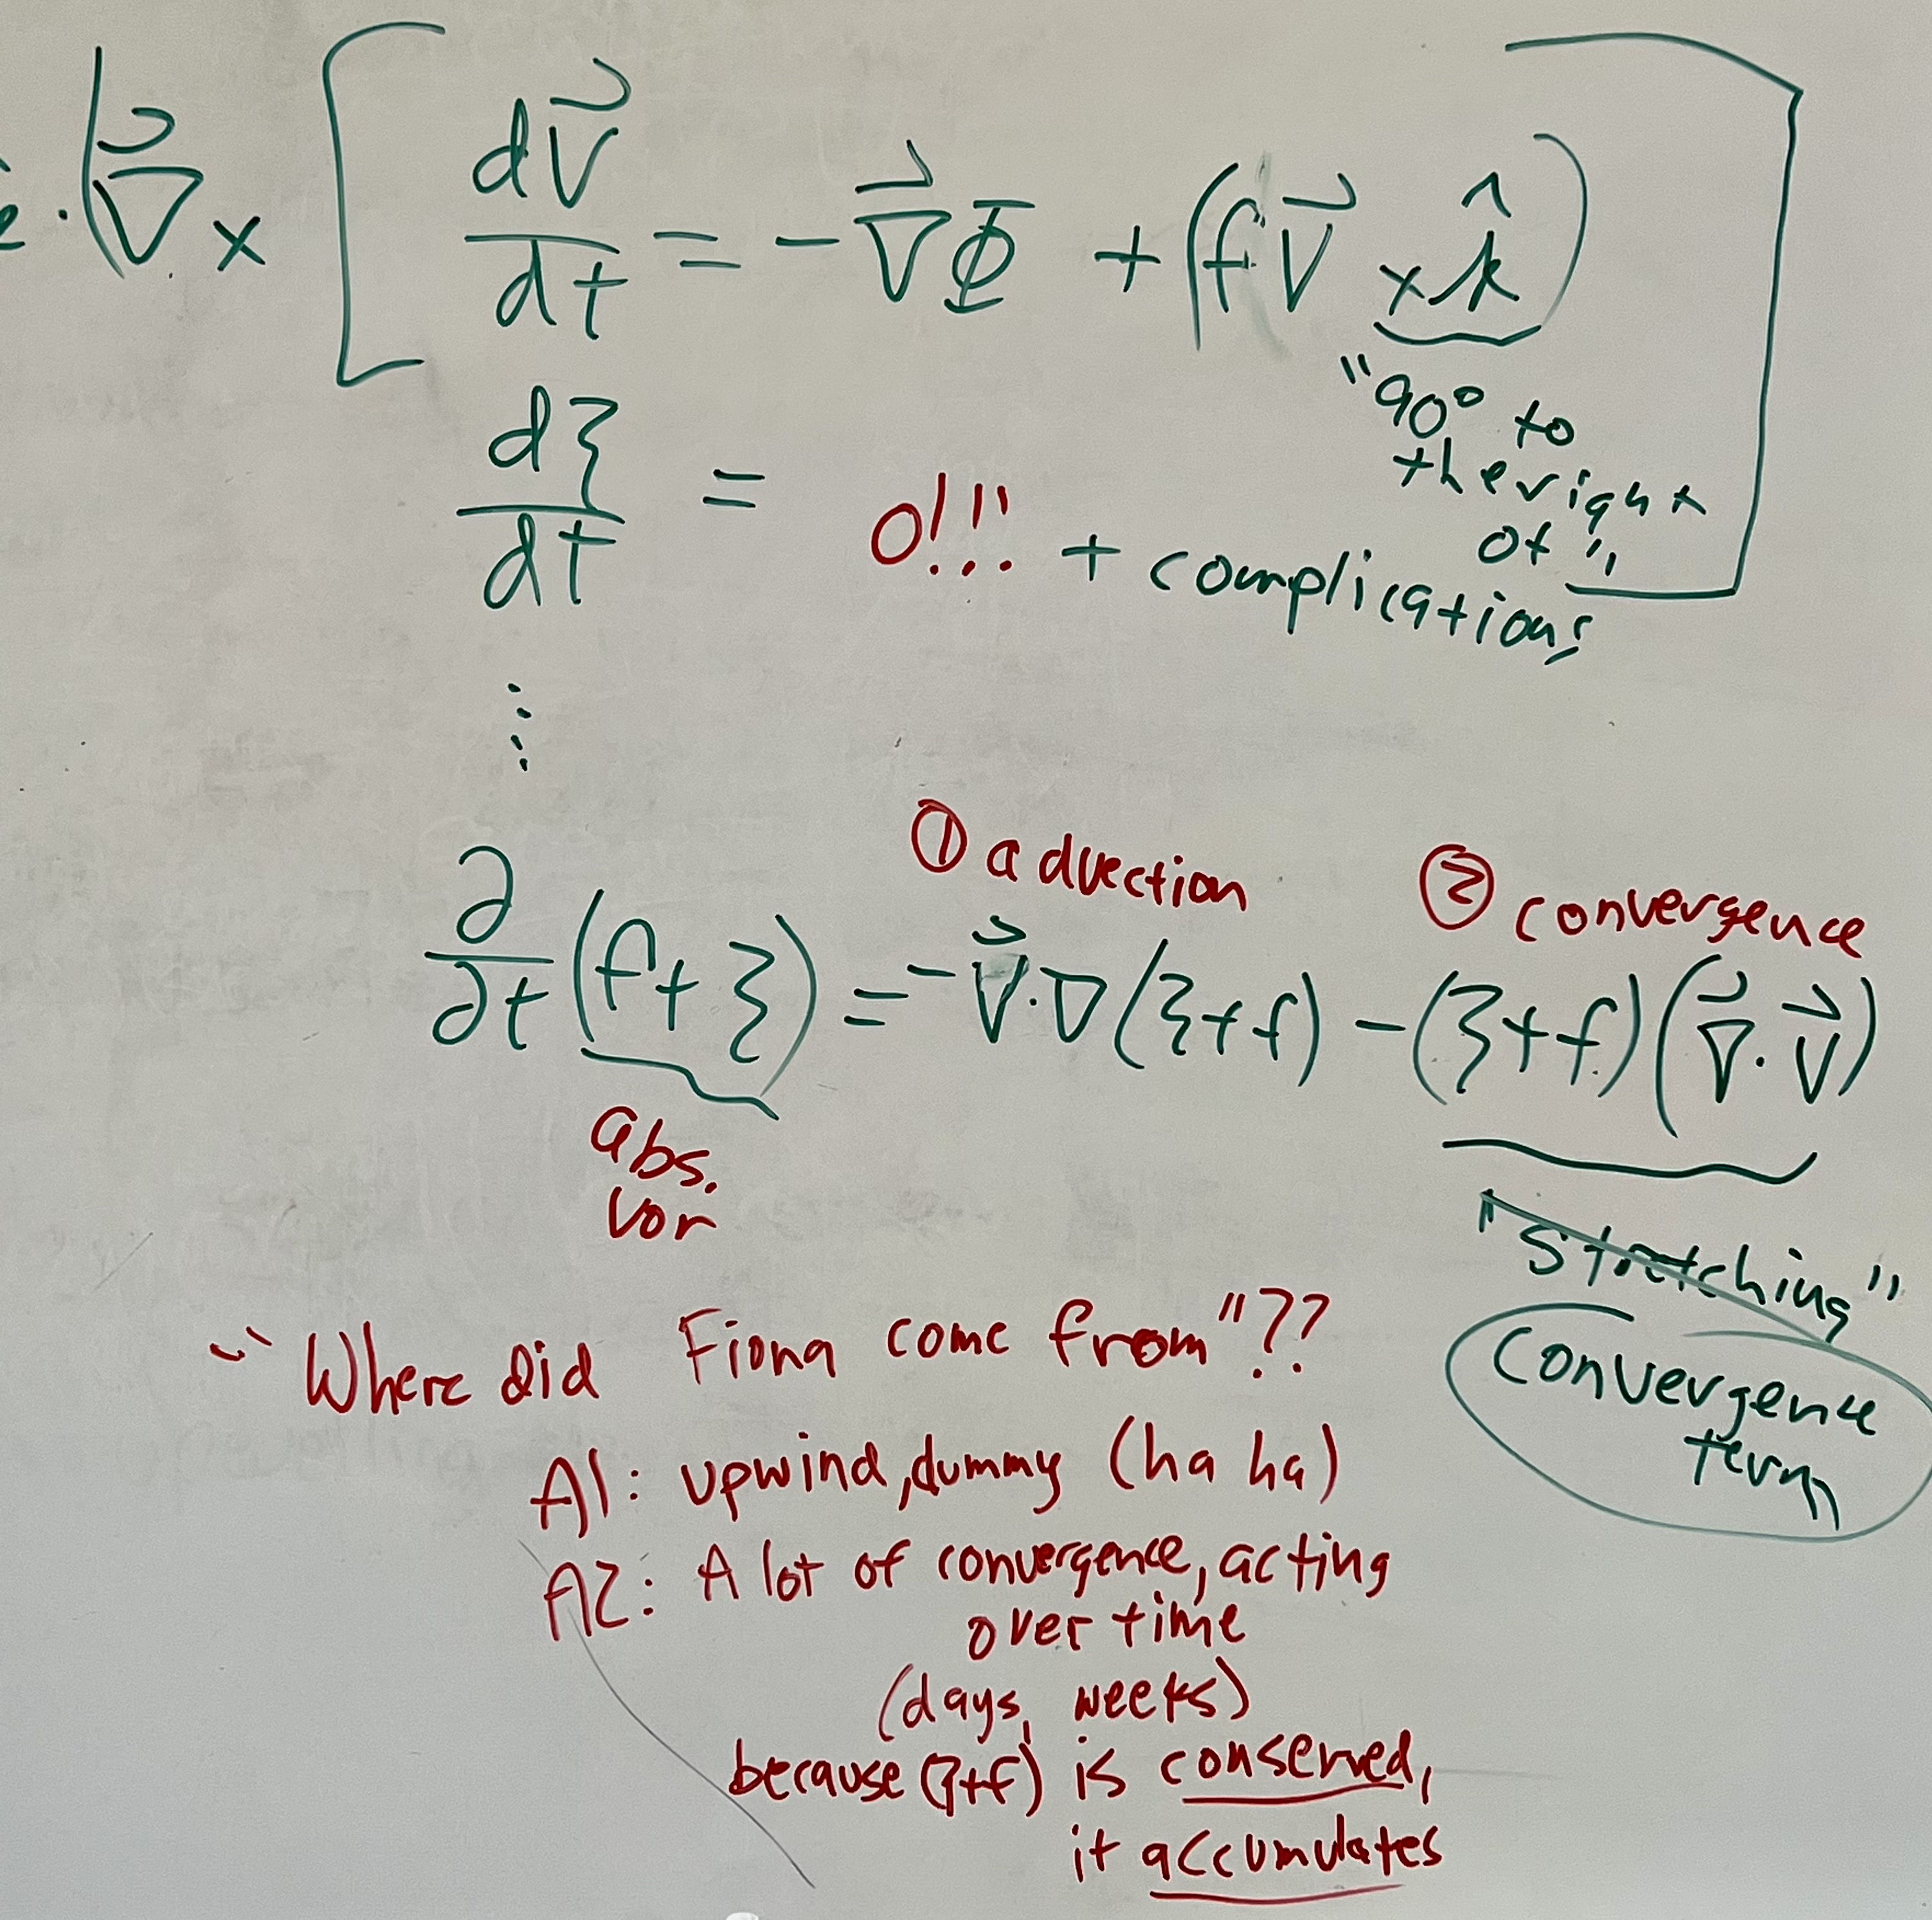 · ( ∇⃗ × [ dV⃗/dt = - ∇⃗Φ + (fV⃗ × k̂) ]
"90° to
the right
of"
dζ/dt = 0!!! + complications
⋮
① advection ② convergence
∂/∂t (f+ζ) = -V⃗·∇(ζ+f) - (ζ+f)(∇⃗·V⃗)
abs.
vor
"Stretching"
Convergence
term
"Where did Fiona come from"??
A1: upwind, dummy (ha ha)
A2: A lot of convergence, acting
over time
(days, weeks)
because (ζ+f) is conserved,
it accumulates